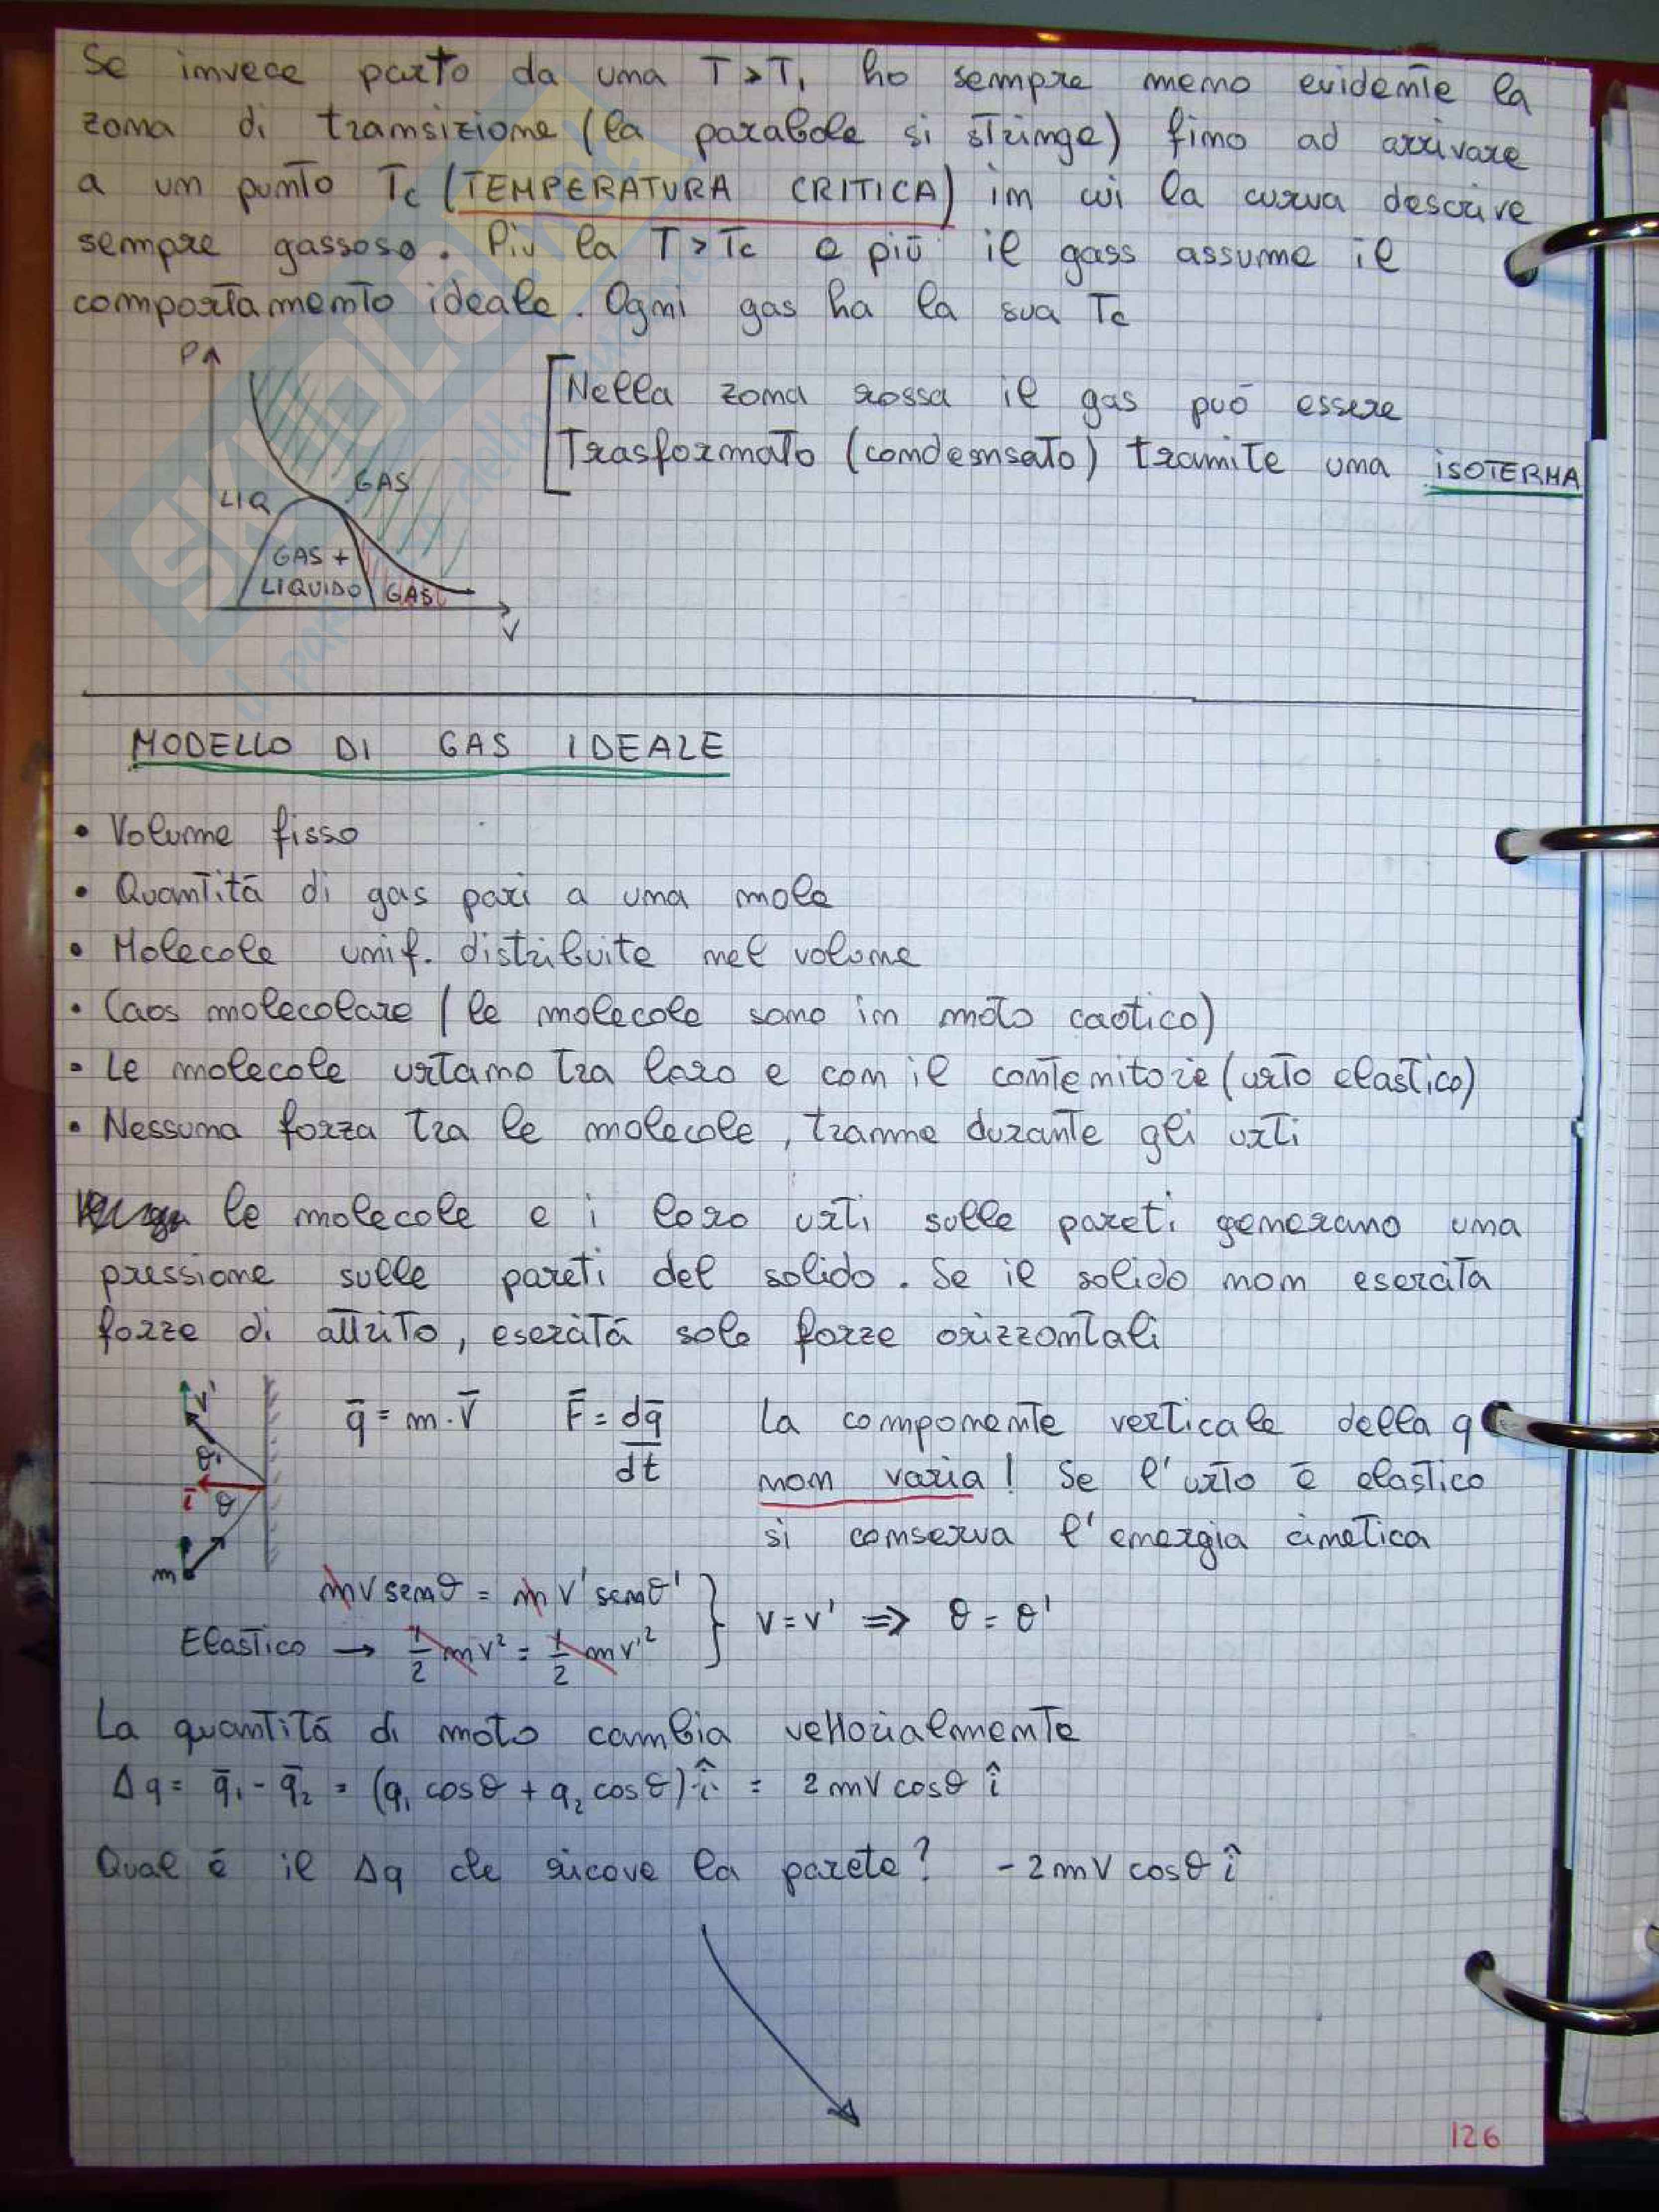 Se invece parto da una T > T₁ ho sempre meno evidente la
zona di transizione (la parabola si stringe) fino ad arrivare
a un punto Tc (TEMPERATURA CRITICA) in cui la curva descrive
sempre gassoso. Più la T > Tc e più il gass assume il
comportamento ideale. Ogni gas ha la sua Tc
P
LIQ
GAS
GAS +
LIQUIDO
GAS
V
Nella zona rossa il gas può essere
trasformato (condensato) tramite una ISOTERMA
MODELLO DI GAS IDEALE
• Volume fisso
• Quantità di gas pari a una mole
• Molecole unif. distribuite nel volume
• Caos molecolare (le molecole sono in moto caotico)
• Le molecole urtano tra loro e con il contenitore (urto elastico)
• Nessuna forza tra le molecole, tranne durante gli urti
le molecole e i loro urti sulle pareti generano una
pressione sulle pareti del solido. Se il solido non esercita
forze di attrito, esercità solo forze orizzontali
v'
θ'
i
θ
m
q̄ = m · v̄   F̄ = dq̄/dt
La componente verticale della q
non varia! Se l'urto è elastico
si conserva l'energia cinetica
mv senθ = m v' senθ'
Elastico → 1/2 mv² = 1/2 mv'²
v = v' => θ = θ'
La quantità di moto cambia vettorialmente
Δq = q̄₁ - q̄₂ = (q₁ cosθ + q₂ cosθ) î = 2mv cosθ î
Qual è il Δq che riceve la parete? -2mv cosθ î
126